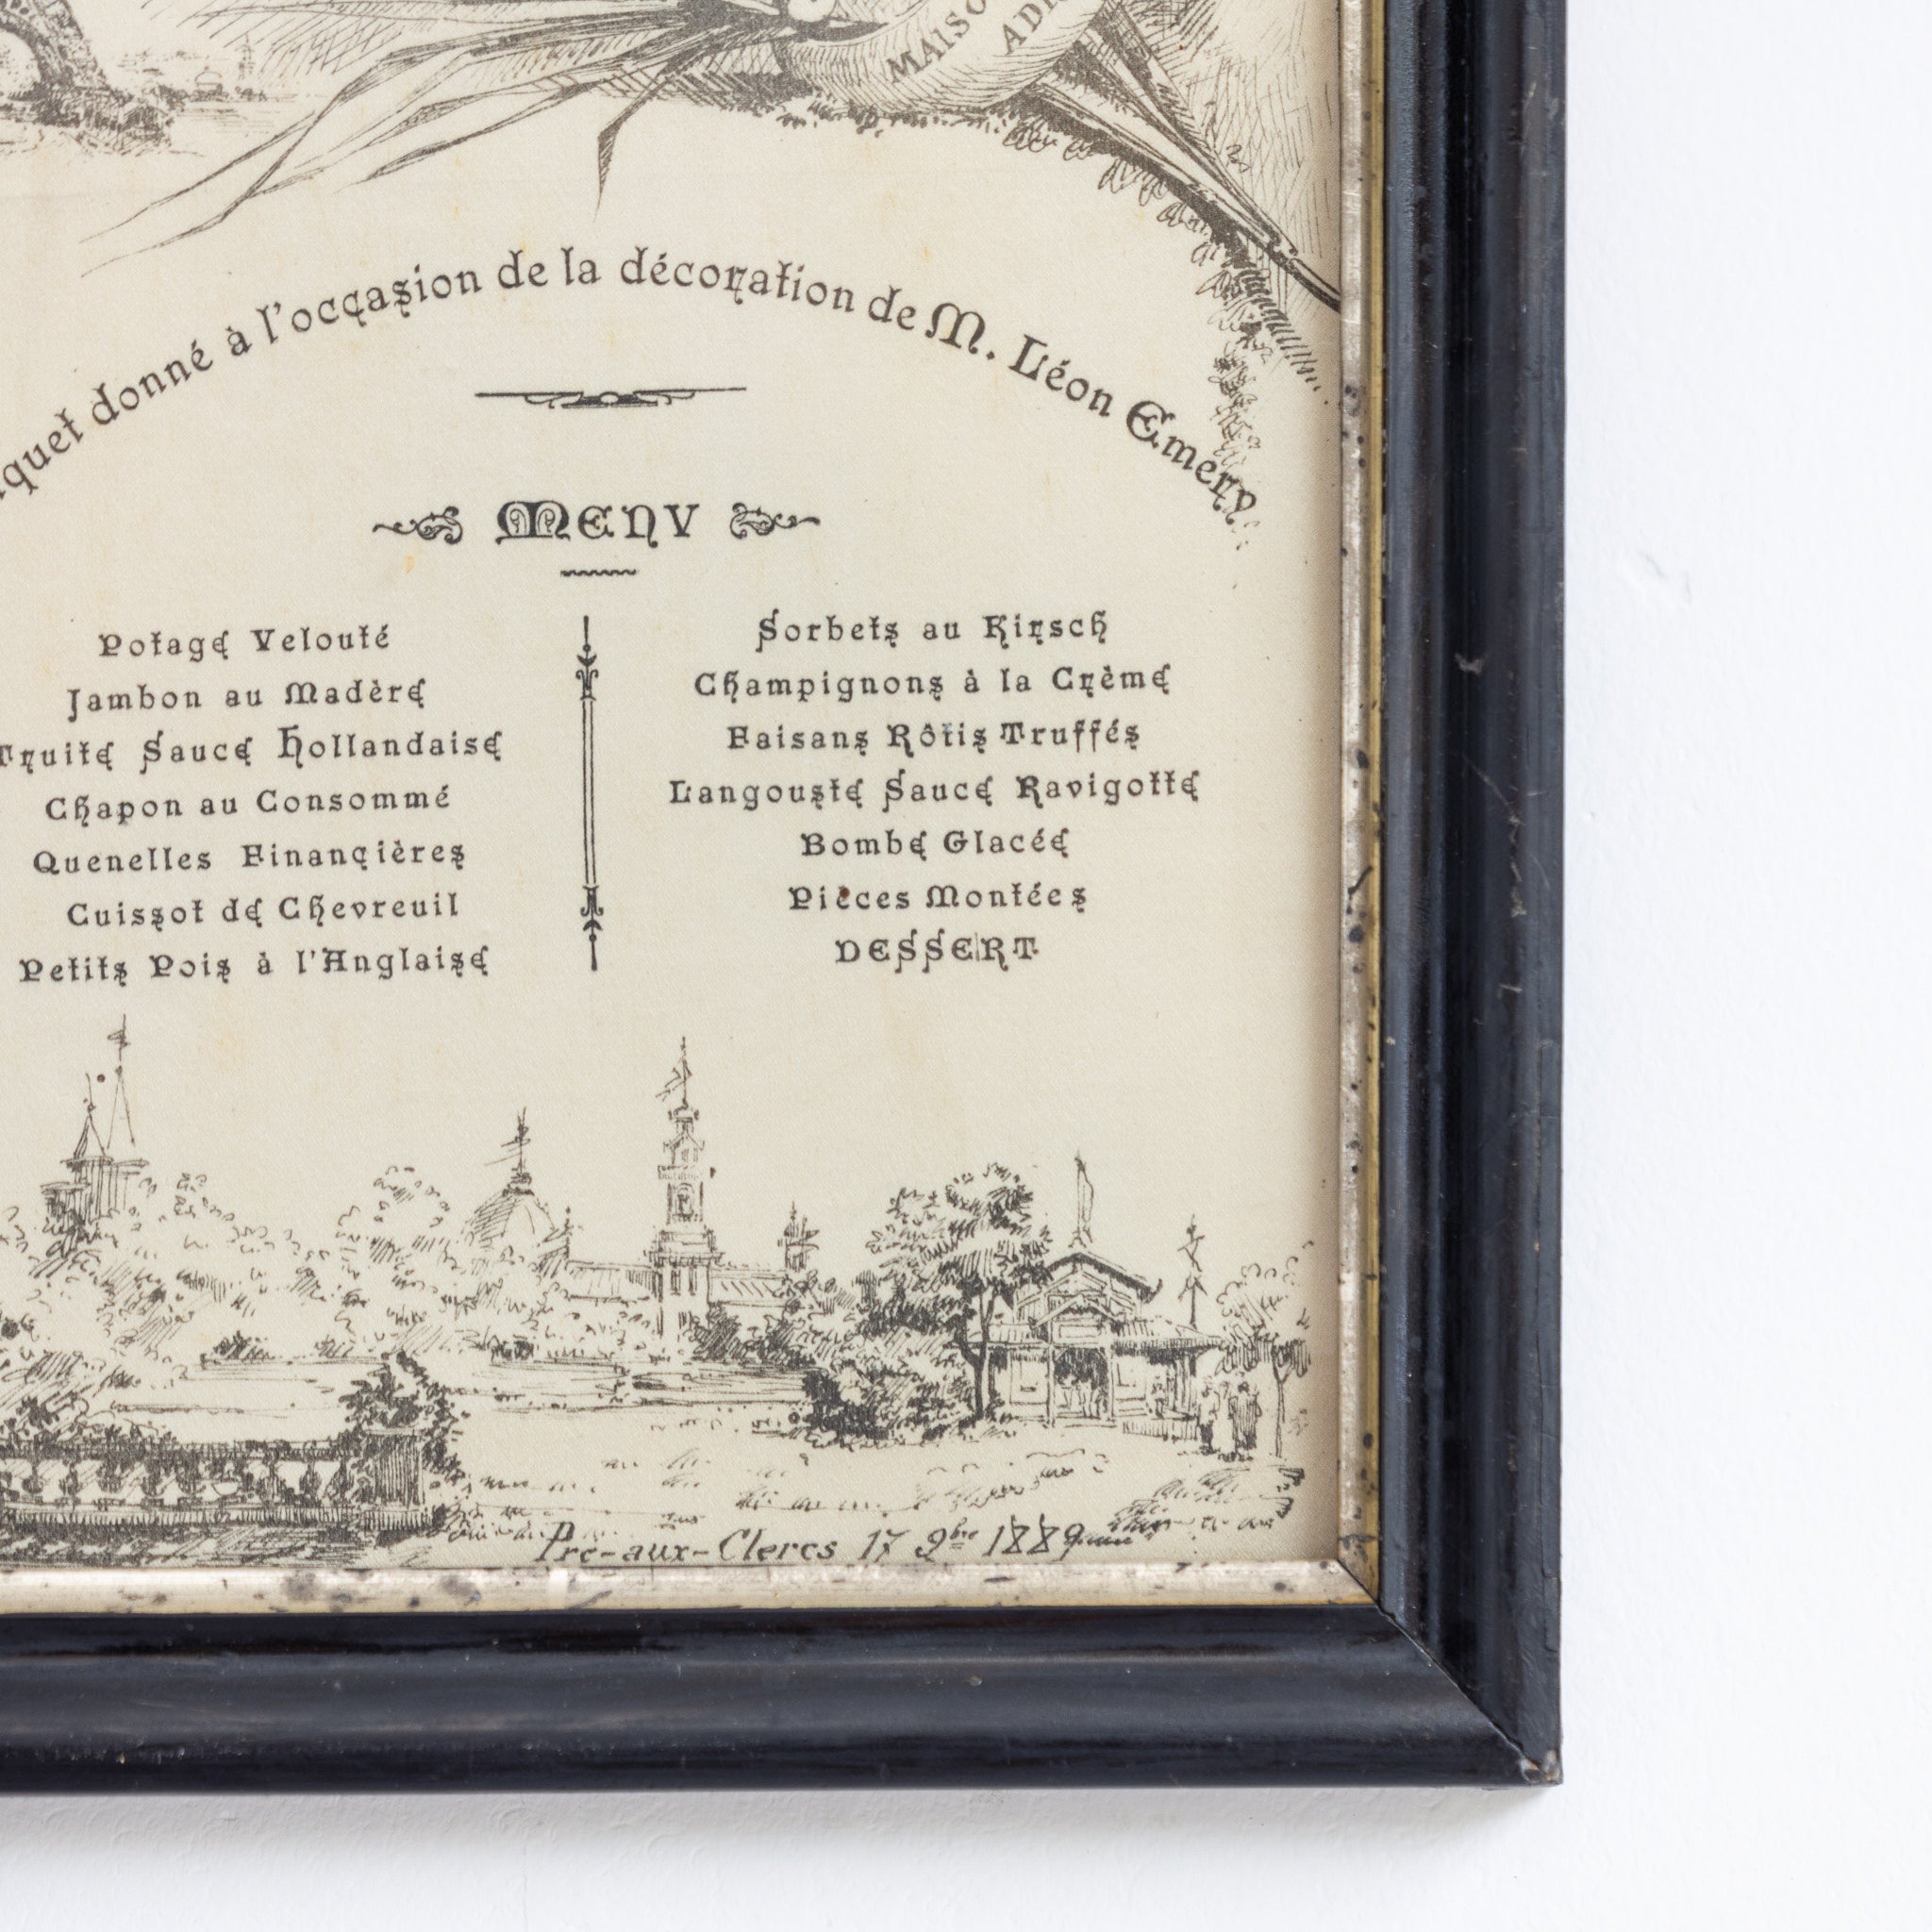 MAISO
AD
quet donné à l'occasion de la décoration de M. Léon Emery
MENV
Potage Velouté
Jambon au Madère
Truite Sauce Hollandaise
Chapon au Consommé
Quenelles Financières
Cuissot de Chevreuil
Petits Pois à l'Anglaise
Sorbets au Kirsch
Champignons à la Crème
Faisans Rôtis Truffés
Langouste Sauce Ravigotte
Bombe Glacée
Pièces Montées
DESSERT
Pré-aux-Clercs 17 9bre 1889